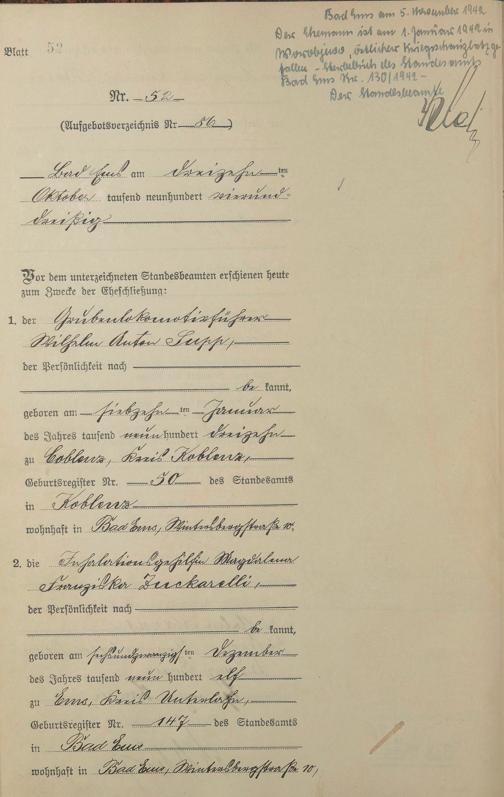 Bad Ems am 5. November 1942
Der Ehemann ist am 1. Januar 1942 in
Worobjewo, östlicher Kriegsschauplatz ge-
fallen - Sterbebuch des Standesamts
Bad Ems Nr. 130/1942 -
Der Standesbeamte
Blatt 52
Nr. 52
(Aufgebotsverzeichnis Nr. 56)
Bad Ems am dreizehnten
Oktober tausend neunhundert vierund-
dreißig
Vor dem unterzeichneten Standesbeamten erschienen heute
zum Zwecke der Eheschließung:
1. der Grubenlokomotivführer
Wilhelm Anton Supp,
der Persönlichkeit nach
be kannt,
geboren am siebzehnten Januar
des Jahres tausend neunhundert dreizehn
zu Coblenz, Kreis Koblenz,
Geburtsregister Nr. 50 des Standesamts
in Koblenz
wohnhaft in Bad Ems, Wintersbergstraße 10.
2. die Inhalationsgehilfin Magdalena
Franziska Zuckarelli,
der Persönlichkeit nach
be kannt,
geboren am sechsundzwanzigsten Dezember
des Jahres tausend neun hundert elf
zu Ems, Kreis Unterlahn,
Geburtsregister Nr. 147 des Standesamts
in Bad Ems
wohnhaft in Bad Ems, Wintersbergstraße 10,